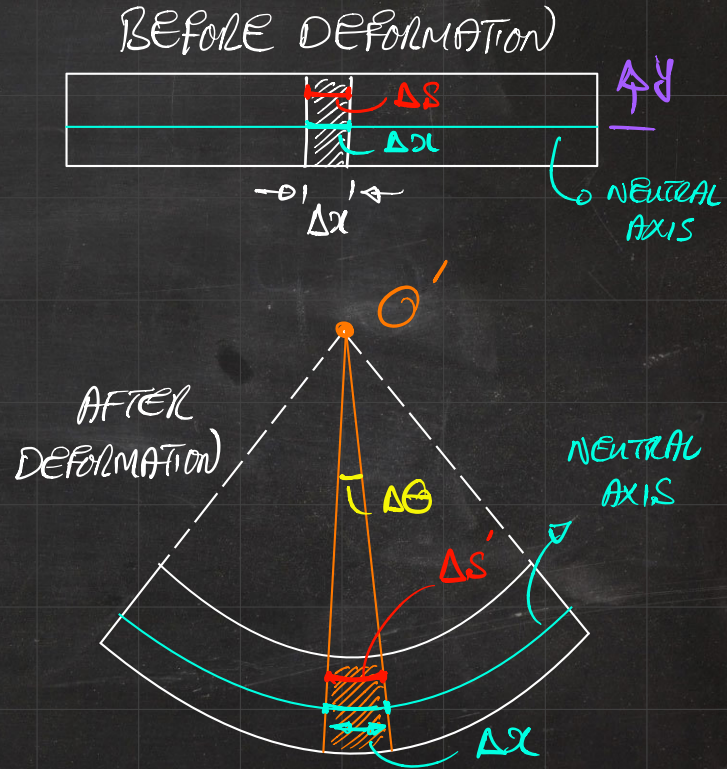 BEFORE DEFORMATION
y
ΔS
Δx
NEUTRAL
AXIS
Δx
O'
AFTER
DEFORMATION
NEUTRAL
AXIS
Δθ
ΔS'
Δx